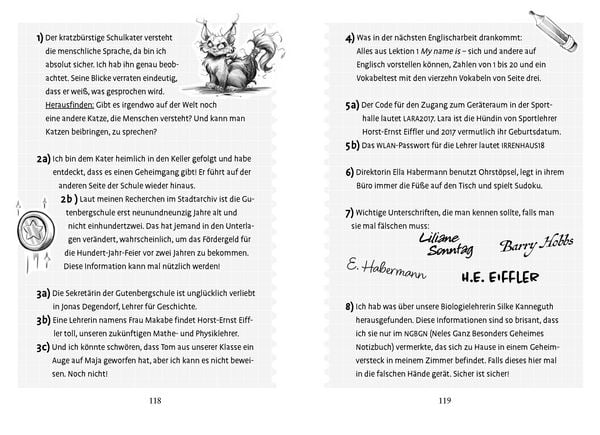 1) Der kratzbürstige Schulkater versteht
die menschliche Sprache, da bin ich
absolut sicher. Ich hab ihn genau beob-
achtet. Seine Blicke verraten eindeutig,
dass er weiß, was gesprochen wird.
Herausfinden: Gibt es irgendwo auf der Welt noch
eine andere Katze, die Menschen versteht? Und kann man
Katzen beibringen, zu sprechen?
2a) Ich bin dem Kater heimlich in den Keller gefolgt und habe
entdeckt, dass es einen Geheimgang gibt! Er führt auf der
anderen Seite der Schule wieder hinaus.
2b) Laut meinen Recherchen im Stadtarchiv ist die Gu-
tenbergschule erst neunundneunzig Jahre alt und
nicht einhundertzwei. Das hat jemand in den Unterla-
gen verändert, wahrscheinlich, um das Fördergeld für
die Hundert-Jahr-Feier vor zwei Jahren zu bekommen.
Diese Information kann mal nützlich werden!
3a) Die Sekretärin der Gutenbergschule ist unglücklich verliebt
in Jonas Degendorf, Lehrer für Geschichte.
3b) Eine Lehrerin namens Frau Makabe findet Horst-Ernst Eiff-
ler toll, unseren zukünftigen Mathe- und Physiklehrer.
3c) Und ich könnte schwören, dass Tom aus unserer Klasse ein
Auge auf Maja geworfen hat, aber ich kann es nicht bewei-
sen. Noch nicht!
118
4) Was in der nächsten Englischarbeit drankommt:
Alles aus Lektion 1 My name is – sich und andere auf
Englisch vorstellen können, Zahlen von 1 bis 20 und ein
Vokabeltest mit den vierzehn Vokabeln von Seite drei.
5a) Der Code für den Zugang zum Geräteraum in der Sport-
halle lautet LARA2017. Lara ist die Hündin von Sportlehrer
Horst-Ernst Eiffler und 2017 vermutlich ihr Geburtsdatum.
5b) Das WLAN-Passwort für die Lehrer lautet IRRENHAUS18
6) Direktorin Ella Habermann benutzt Ohrstöpsel, legt in ihrem
Büro immer die Füße auf den Tisch und spielt Sudoku.
7) Wichtige Unterschriften, die man kennen sollte, falls man
sie mal fälschen muss:
Liliane
Sonntag
Barry Hobbs
E. Habermann
H.E. EIFFLER
8) Ich hab was über unsere Biologielehrerin Silke Kanneguth
herausgefunden. Diese Informationen sind so brisant, dass
ich sie nur im NGBGN (Neles Ganz Besonders Geheimes
Notizbuch) vermerkte, das sich zu Hause in einem Geheim-
versteck in meinem Zimmer befindet. Falls dieses hier mal
in die falschen Hände gerät. Sicher ist sicher!
119